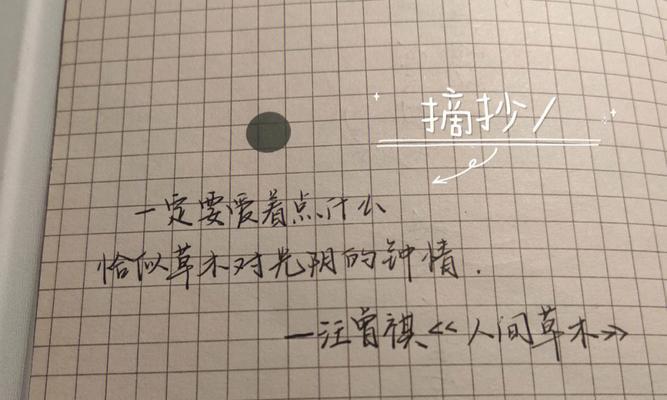 摘抄/
一定要爱着点什么
恰似草木对光阴的钟情.
—汪曾祺《人间草木》